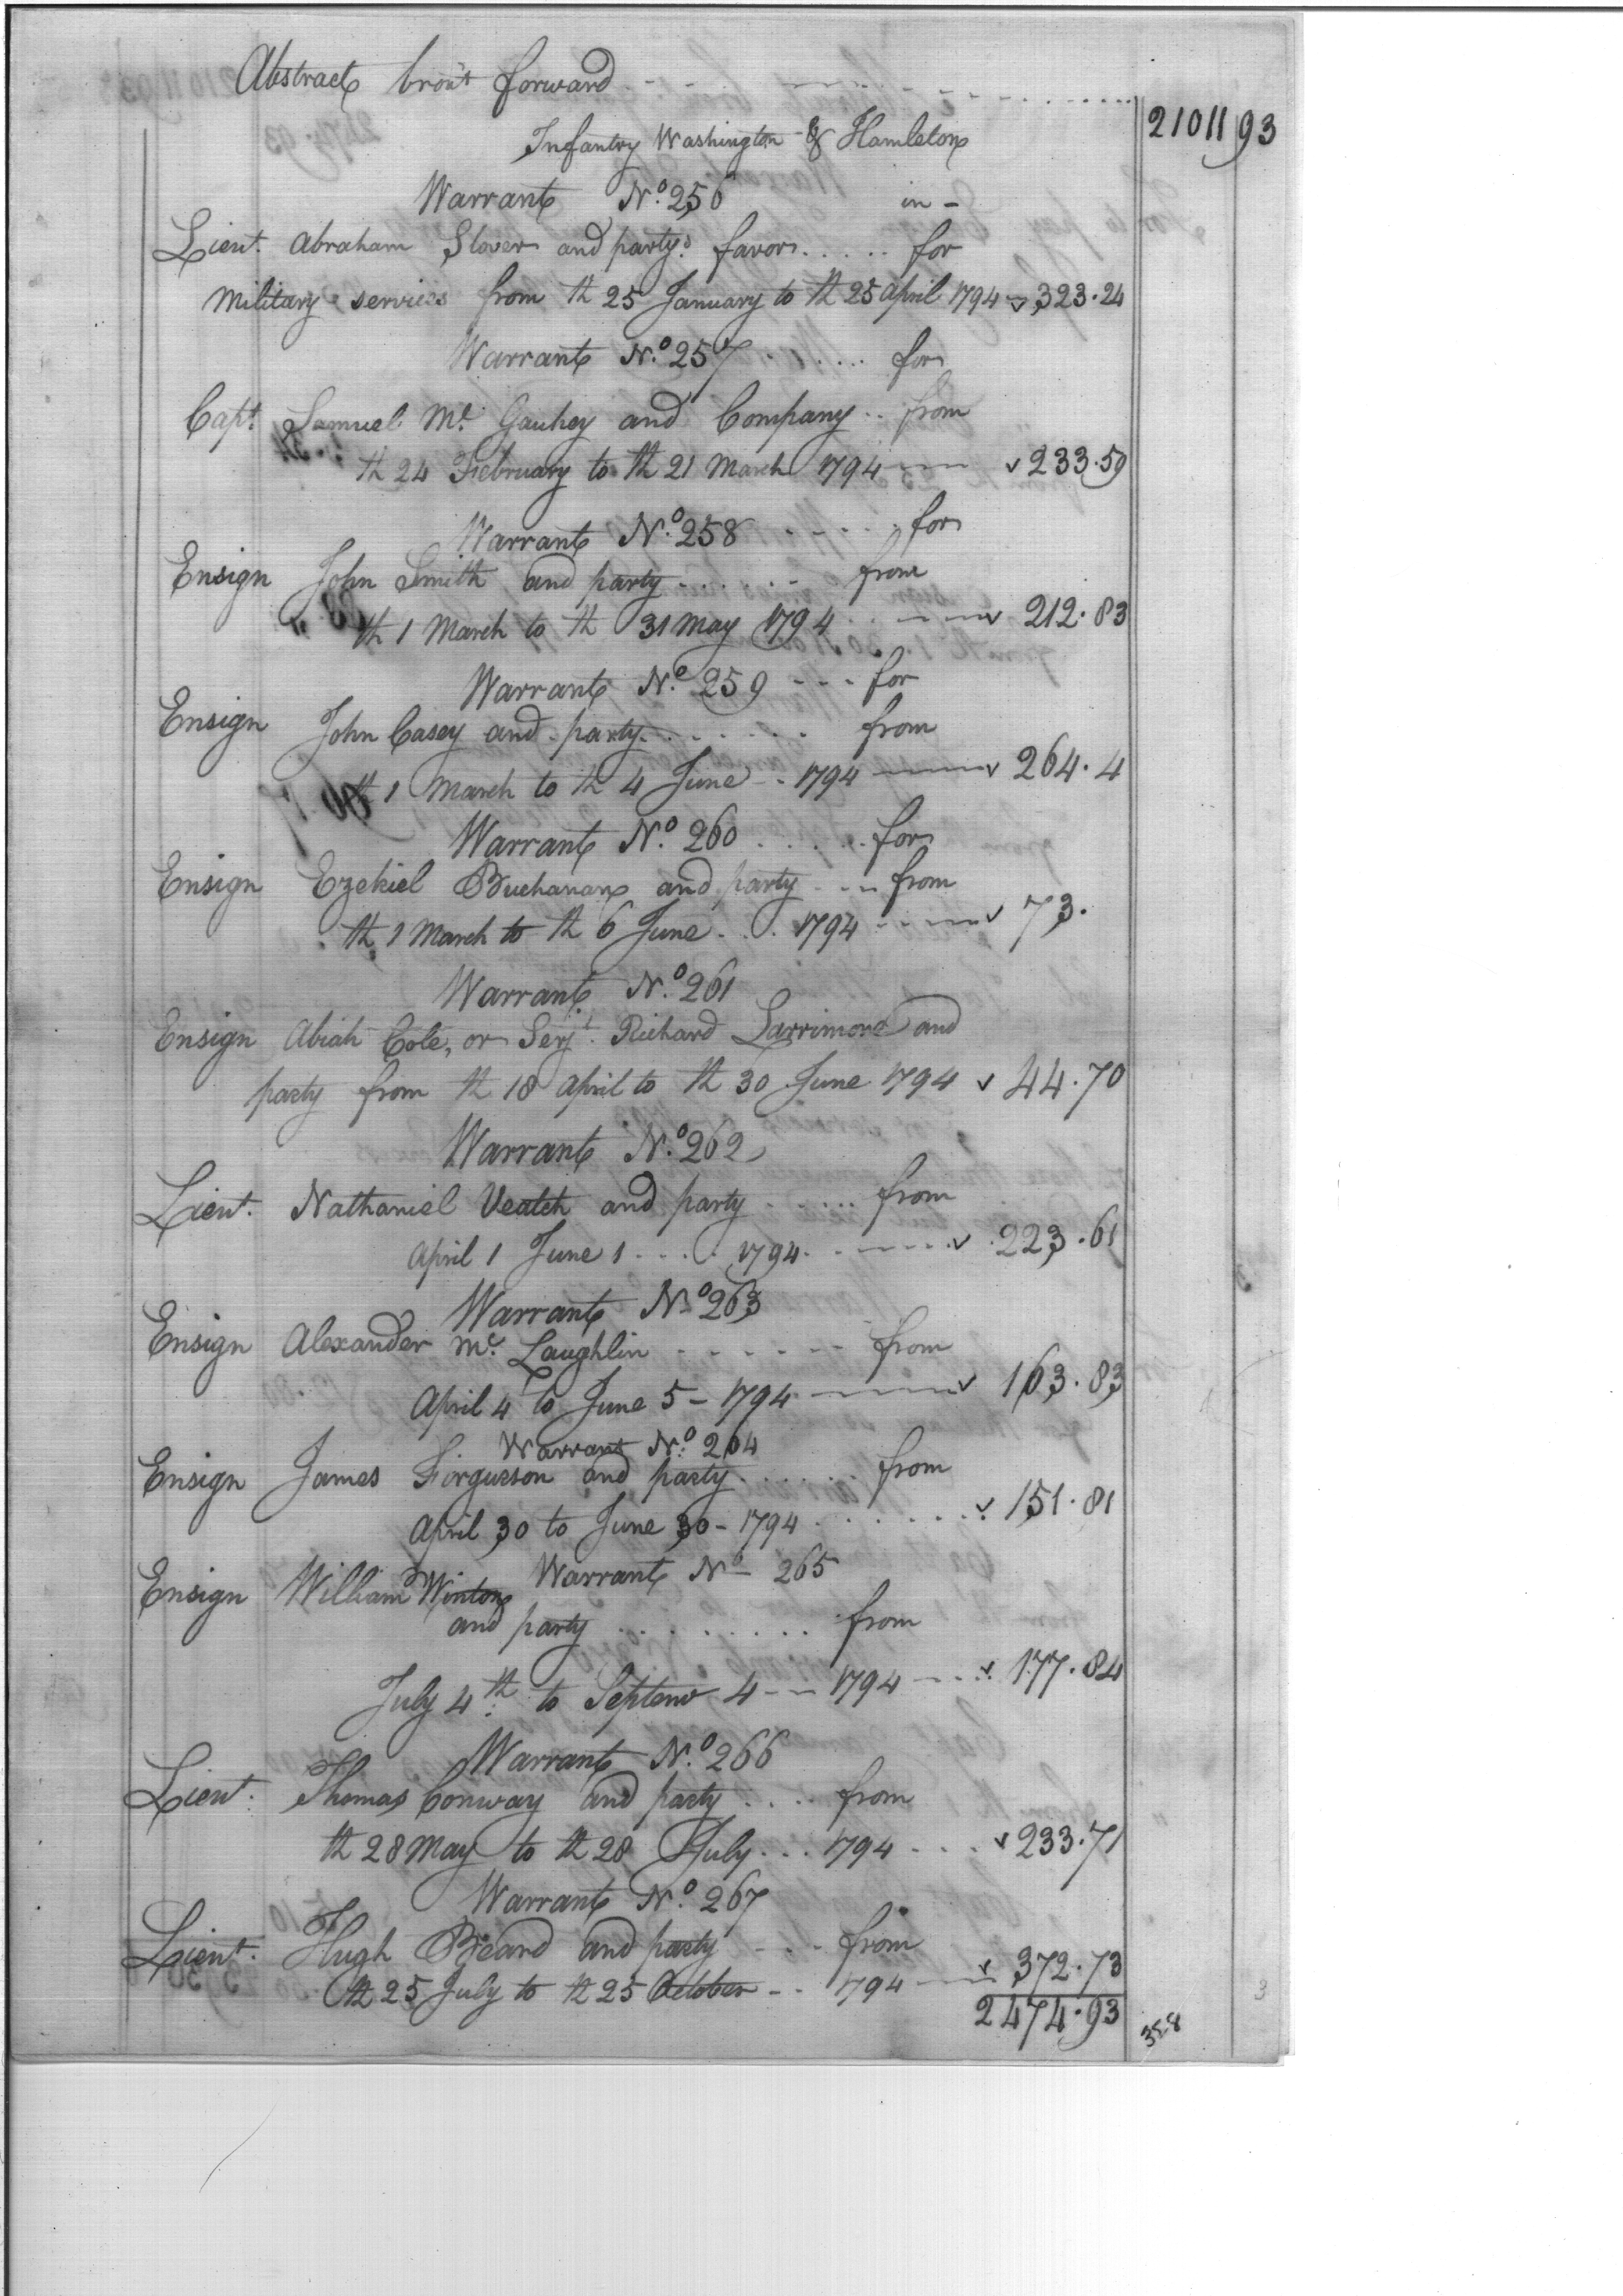 Abstract bro't forward 21011 93
Infantry Washington & Hamleton
Warrant No. 256 in -
Lieut. Abraham Slover and partys favor..... for
Military services from th 25 January to th 25 April 1794 323.24
Warrant No. 257 ..... for
Capt. Samuel Mc. Gauhey and Company .. from
th 24 February to th 21 March 1794 233.59
Warrant No. 258 ..... for
Ensign John Smith and party ...... from
th 1 March to th 31 May 1794 212.83
Warrant No. 259 - - - for
Ensign John Casey and party ....... from
th 1 March to th 4 June - . 1794 264.4
Warrant No. 260 ...... for
Ensign Ezekiel Buchanan and party ... from
th 1 March to th 6 June ... 1794 73.
Warrant No. 261
Ensign Abiah Cole, or Serjt. Richard Larrimore and
party from th 18 April to th 30 June 1794 44.70
Warrant No. 262
Lieut. Nathaniel Veatch and party ...... from
April 1 June 1 ..... 1794 223.61
Warrant No 263
Ensign Alexander Mc. Laughlin - - - - - - from
April 4 to June 5 - 1794 163.83
Warrant No. 264
Ensign James Forgusson and party ...... from
April 30 to June 30 - 1794 ....... 151.81
Warrant No - 265
Ensign William Winton
and party ......... from
July 4th to Septem 4 - - 1794 177.84
Warrant No. 266
Lieut. Thomas Conway and party .... from
th 28 May to th 28 July ... 1794 .... 233.71
Warrant No. 267
Lieut. Hugh Beard and party - - - from
th 25 July to th 25 October - . 1794 372.73
2474.93
358